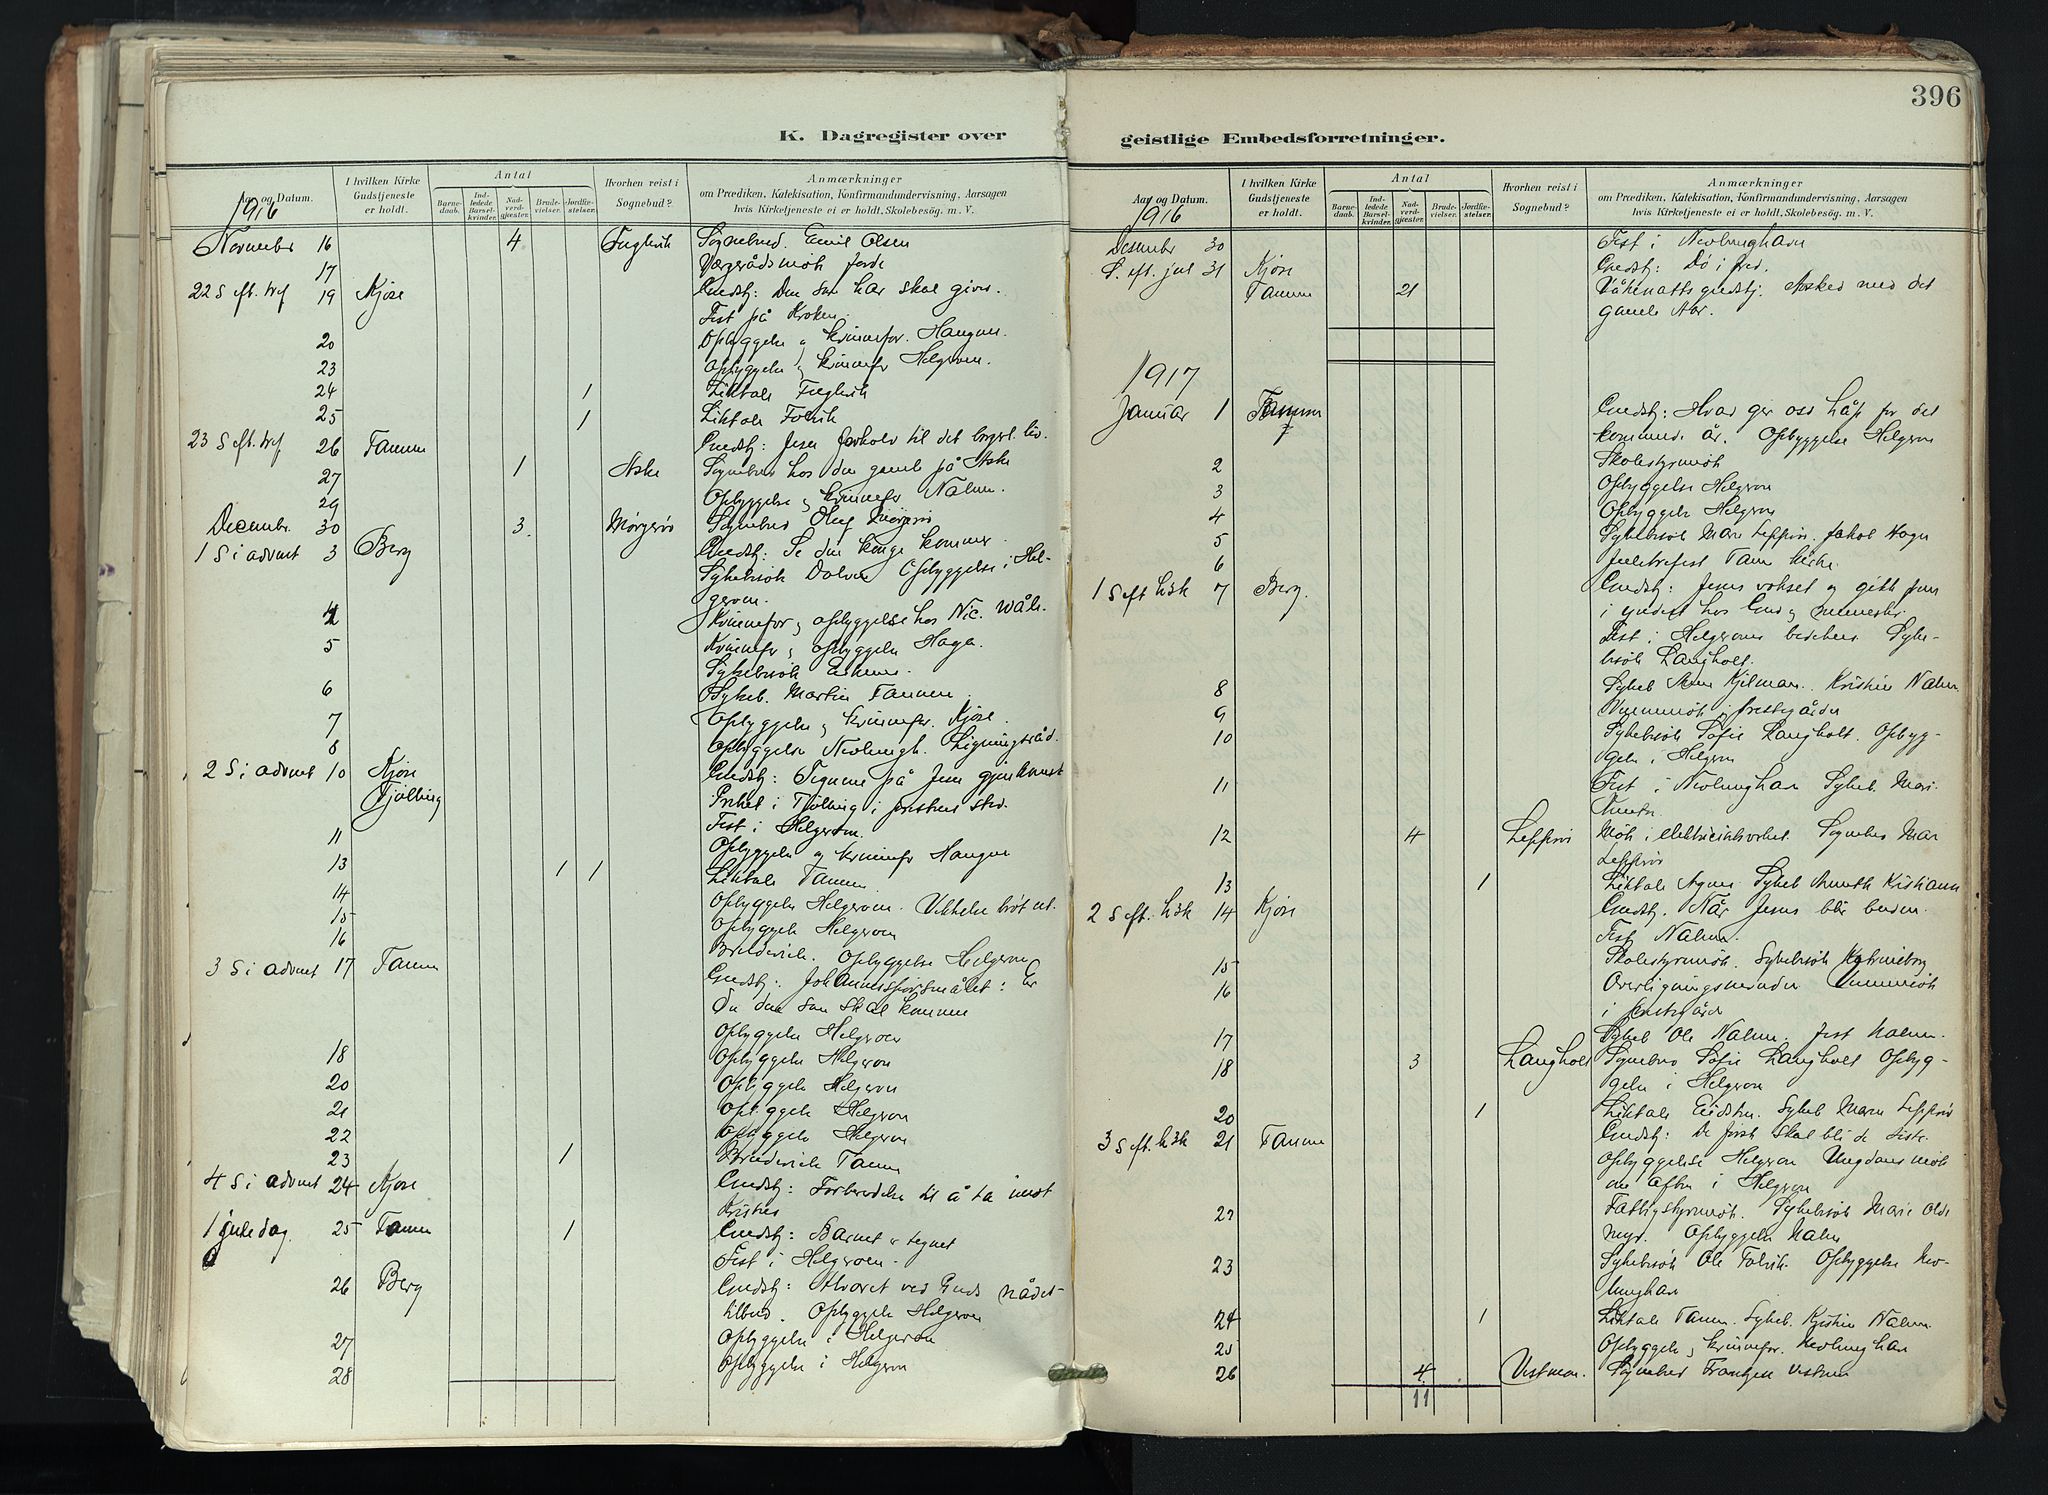 396
K. Dagregister over geistlige Embedsforretninger.
Aar og Datum.
I hvilken Kirke Gudstjeneste er holdt.
Antal
Barnedaab.
Indledede Barselkvinder.
Nadverdgjester.
Brudevielser.
Jordfæstelser.
Hvorhen reist i Sognebud?
Anmærkninger
om Prædiken, Katekisation, Konfirmandundervisning, Aarsagen
hvis Kirketjeneste ei er holdt, Skolebesøg. m. V.
1916
November 16 4 Fuglevik Sognebud. Emil Olsen
17 Værgerådsmøte
22 S eft. tref 19 Kjøse Gudstj: Den som har skal gives.
Fest på Kroken.
20 Opbyggelse og kvinnefor. Haugene.
23 Opbyggelse og kvinnefor Helgeroen.
24 1 Liktale Fuglevik
25 1 Liktale Folvik
23 S eft. tref 26 Tanum Gudstj: Jesu forhold til det borgerl. liv.
27 1 Aske Sognebud hos den gamle på Aske
29 Opbyggelse og kvinnefor Nalum.
December 30 3 Sognebud Oluf
1 S i advent 3 Berg Gudstj: Se din konge kommer.
Sykebesøk Dolven Opbyggelse i Hel-
geroen.
4 Kvinnefor og opbyggelse hos Nic. Wåle.
5 Kvinnefor og opbyggelse Hagen.
Sykebesøk
6 Sykeb. Martin Tanum
7 Opbyggelse og kvinnefor. Kjøse.
8 Opbyggelse Nevlungh. Ligningsråd.
2 S i advent 10 Kjøse Gudstj: Tegnene på Jesu gjenkomst
Tjølling Preket i Tjølling i prestens sted.
Fest i Helgeroen.
11 Opbyggelse og kvinnefor Haugene
13 1 1 Liktale Tanum
14 Opbyggelse Helgeroen.
15 Opbyggelse Helgeroen
16 Brudevielse. Opbyggelse Helgeroen
3 S i advent 17 Tanum Gudstj: Johannesspørsmålet: Er
Du den som skal komme
Opbyggelse Helgeroen
18 Opbyggelse Helgeroen
20 Opbyggelse Helgeroen
21 Opbyggelse Helgeroen
22 Opbyggelse Helgeroen
23 1 Brudevielse Tanum
4 S i advent 24 Kjøse Gudstj: Forberedelse til å ta imot
Kristus
1 juledag 25 Tanum 1 Gudstj: Barnet er tegnet
Fest i Helgeroen.
26 Berg Gudstj: Alvoret ved Guds nådes-
tilbud. Opbyggelse Helgeroen
27 Opbyggelse i Helgeroen
28 Opbyggelse i Helgeroen
Aar og Datum.
I hvilken Kirke Gudstjeneste er holdt.
Antal
Barnedaab.
Indledede Barselkvinder.
Nadverdgjester.
Brudevielser.
Jordfæstelser.
Hvorhen reist i Sognebud?
Anmærkninger
om Prædiken, Katekisation, Konfirmandundervisning, Aarsagen
hvis Kirketjeneste ei er holdt, Skolebesøg. m. V.
1916
Desember 30 Fest i Nevlunghavn
S. eft. jul 31 Kjøse Gudstj: Dø i fred.
Tanum 21 Våkenattsgudstj. Avsked med det
gamle År.
1917
Januar 1 Tanum Gudstj: Hvad gir oss håp for det
kommende år. Opbyggelse Helgeroen
2 Skolestyremøte
3 Opbyggelse Helgeroen
4 Opbyggelse Helgeroen
5 Sykebesøk Jakob Hagen
6 Juletrefest Tanum kirke.
1 S eft H3K 7 Berg. Gudstj: Jesus vokset og gikk frem
i yndest hos Gud og mennesker.
Fest i Helgeroens bedehus. Syke-
besøk Langholt.
8 Sykeb Kristine Nalum
9 prestegården
10 Sykebesøk Sofie Langholt. Opbyg-
gelse i Helgeroen
11 Fest i Nevlunghavn Sykeb. Mari
12 4 Møte i elektricitetsverket. Sognebud
13 1 Liktale Agnes Sykeb
2 S eft. H3K 14 Kjøse Gudstj. Når Jesus blir buden.
Fest Nalum.
15 Skolestyremøte. Sykebesøk
16 Overligningsnevnden
i prestegården
17 Sykeb Ole Nalum. fest Nalum.
18 3 Langholt Sognebud Sofie Langholt Opbyg-
gelse i Helgeroen
20 1 Liktale Eidsten. Sykeb
3 S eft. H3K 21 Tanum Gudstj: De første skal bli de siste.
Opbyggelse Helgeroen Ungdomsmøte
om aften i Helgeroen
22 Fattigstyremøte. Sykebesøk Marie Olde
myr. Opbyggelse Nalum
23 Sykebesøk Ole Folvik. Opbyggelse Nev-
lunghavn
24 1 Liktale Tanum. Sykeb. Kristine Nalum.
25 Opbyggelse og kvinnefor. Nevlunghavn
26 4 Sognebud
11